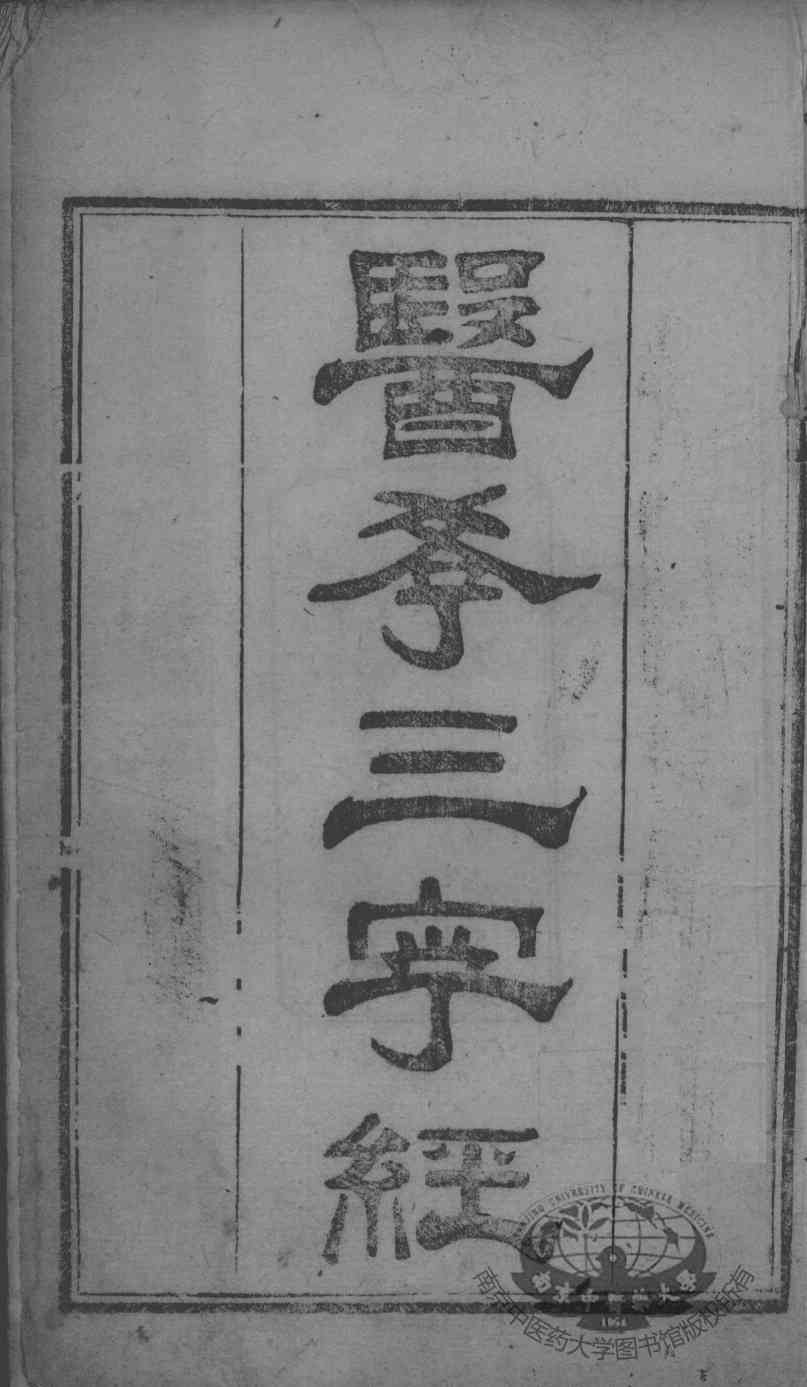 醫孝三字經
NANJING UNIVERSITY OF CHINESE MEDICINE
南京中醫药大学
1954
南京中医药大学图书馆版权所有